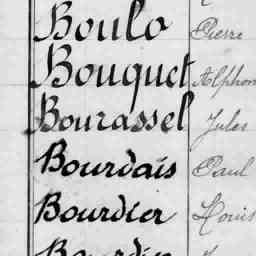 Boulo Pierre
Bouquet Alphon
Bourassel Jules
Bourdais Paul
Bourdier Louis
Bourdin